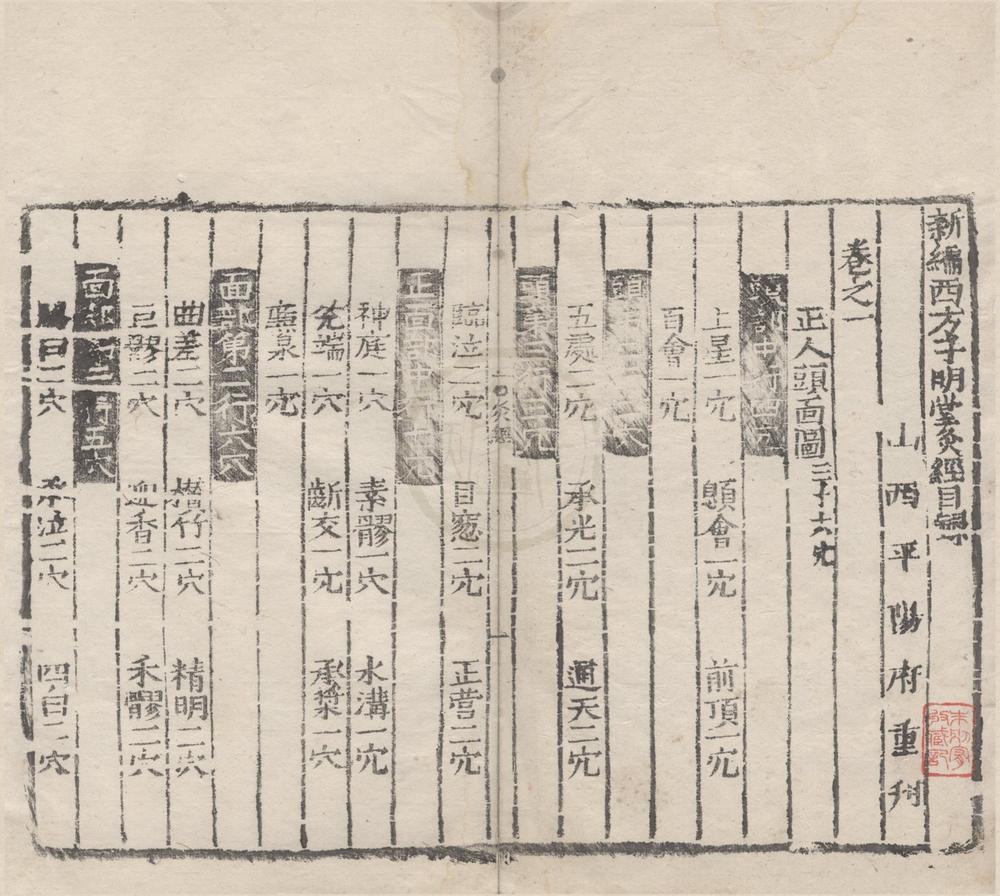 新編西方子明堂灸經目錄
山西平陽府重刊
卷之一
正人頭面圖三十六穴
頭部中行四穴
上星一穴 顖會一穴 前頂一穴
百會一穴
頭第二行三穴
五處二穴 承光二穴 通天二穴
頭第三行三穴
臨泣二穴 目窓二穴 正營二穴
正面部中行六穴
神庭一穴 素髎一穴 水溝一穴
兊端一穴 齗交一穴 承漿一穴
廉泉一穴
面部第二行六穴
曲差二穴 攅竹二穴 精明二穴
巨髎二穴 迎香二穴 禾髎二穴
面部第二行五穴
陽白二穴 承泣二穴 四白二穴
灸經 一